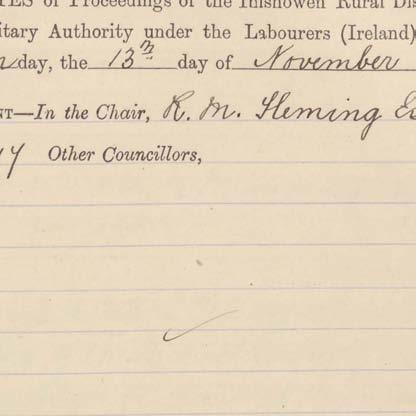 of Proceedings of the Inishowen Rural Dis
itary Authority under the Labourers (Ireland)
day, the 13th day of November
NT—In the Chair, R. M. Fleming Es
Other Councillors,